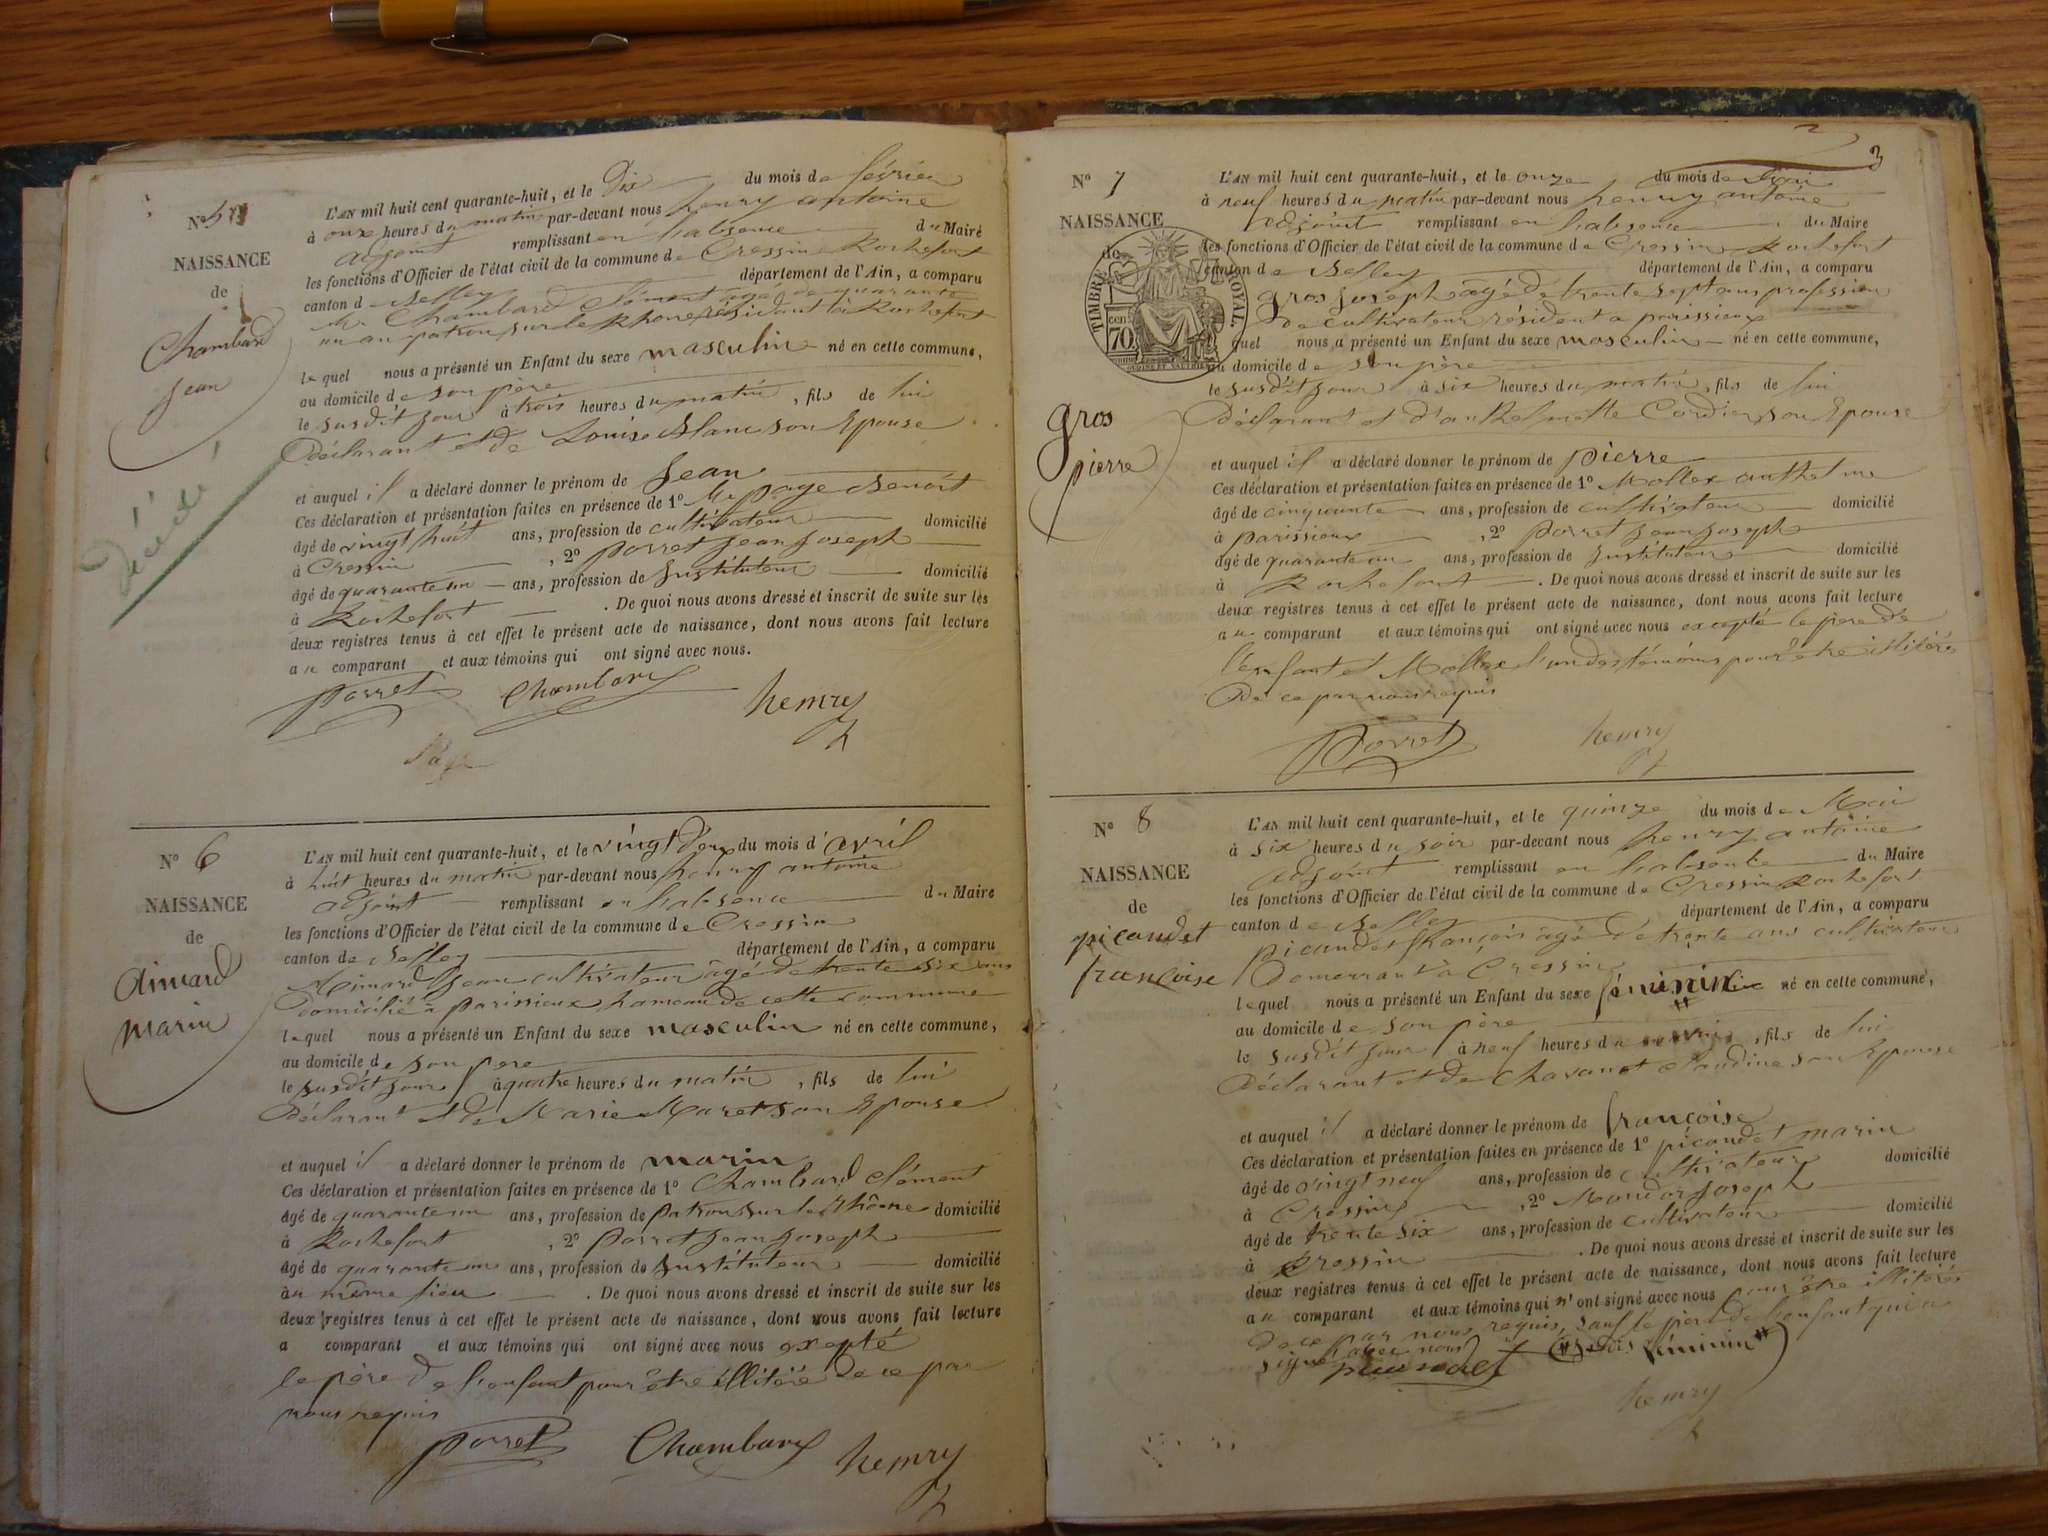 N° 5
NAISSANCE
de
Chambard
Jean
décédé
L'AN mil huit cent quarante-huit, et le dix du mois de février
à onze heures du matin par-devant nous henry antoine
adjoint remplissant en l'absence du Maire
les fonctions d'Officier de l'état civil de la commune de Cressin Rochefort
canton de Belley département de l'Ain, a comparu
Mr Chambard Clément âgé de quarante
un an patron sur le Rhône résidant à Rochefort
lequel nous a présenté un Enfant du sexe masculin né en cette commune,
au domicile de son père
le susdit jour à trois heures du matin, fils de lui
Déclarant et de Louise Blanc son Epouse
et auquel il a déclaré donner le prénom de Jean
Ces déclaration et présentation faites en présence de 1° Mr page Benoît
âgé de vingt huit ans, profession de cultivateur domicilié
à Cressin, 2° porret Jean Joseph
âgé de quarante un ans, profession de Instituteur domicilié
à Rochefort. De quoi nous avons dressé et inscrit de suite sur les
deux registres tenus à cet effet le présent acte de naissance, dont nous avons fait lecture
au comparant et aux témoins qui ont signé avec nous.
porret Chambard henry
Page
N° 6
NAISSANCE
de
Aimard
marin
L'AN mil huit cent quarante-huit, et le vingt deux du mois d'avril
à huit heures du matin par-devant nous henry antoine
adjoint remplissant en l'absence du Maire
les fonctions d'Officier de l'état civil de la commune de Cressin
canton de Belley département de l'Ain, a comparu
Aimard Jean cultivateur âgé de trente six ans
domicilié à parissieux hameau de cette commune
lequel nous a présenté un Enfant du sexe masculin né en cette commune,
au domicile de son pere
le susdit jour à quatre heures du matin, fils de lui
Déclarant et de Marie Maret son Epouse
et auquel il a déclaré donner le prénom de marin
Ces déclaration et présentation faites en présence de 1° Chambard Clément
âgé de quarante un ans, profession de patron sur le Rhône domicilié
à Rochefort, 2° porret Jean Joseph
âgé de quarante un ans, profession de Instituteur domicilié
au même lieu. De quoi nous avons dressé et inscrit de suite sur les
deux registres tenus à cet effet le présent acte de naissance, dont nous avons fait lecture
a comparant et aux témoins qui ont signé avec nous excepté
le père de l'enfant pour être illitéré de ce par
nous requis
porret Chambard henry
3
N° 7
NAISSANCE
de
TIMBRE ROYAL.
70
gros
pierre
L'AN mil huit cent quarante-huit, et le onze du mois de
à neuf heures du matin par-devant nous henry antoine
adjoint remplissant en l'absence du Maire
les fonctions d'Officier de l'état civil de la commune de Cressin Rochefort
canton de Belley département de l'Ain, a comparu
gros Joseph âgé de trente sept ans profession
de cultivateur résident a parissieux
quel nous a présenté un Enfant du sexe masculin né en cette commune,
au domicile de son père
le susdit jour à six heures du matin, fils de lui
Déclarant et d'anthelmette Cordier son Epouse
et auquel il a déclaré donner le prénom de pierre
Ces déclaration et présentation faites en présence de 1° Mollex anthelme
âgé de cinquante ans, profession de cultivateur domicilié
à parissieux, 2° porret Jean Joseph
âgé de quarante un ans, profession de Instituteur domicilié
à Rochefort. De quoi nous avons dressé et inscrit de suite sur les
deux registres tenus à cet effet le présent acte de naissance, dont nous avons fait lecture
au comparant et aux témoins qui ont signé avec nous excepté le père de
l'enfant et Mollex l'un des témoins pour être illitérés
De ce par nous requis
Porret henry
N° 8
NAISSANCE
de
picaudet
françoise
L'AN mil huit cent quarante-huit, et le quinze du mois de Mai
à six heures du soir par-devant nous henry antoine
adjoint remplissant en l'absente du Maire
les fonctions d'Officier de l'état civil de la commune de Cressin Rochefort
canton de Belley département de l'Ain, a comparu
picaudet françois âgé de trente ans cultivateur
Demeurant à Cressin
lequel nous a présenté un Enfant du sexe féminin né en cette commune,
au domicile de son père
le susdit jour à neuf heures du, fils de lui
Déclarant et de Chavanet Claudine son Epouse
et auquel il a déclaré donner le prénom de françoise
Ces déclaration et présentation faites en présence de 1° picaudet marin
âgé de vingt neuf ans, profession de cultivateur domicilié
à Cressin, 2° Joseph
âgé de trente six ans, profession de cultivateur domicilié
à Cressin. De quoi nous avons dressé et inscrit de suite sur les
deux registres tenus à cet effet le présent acte de naissance, dont nous avons fait lecture
au comparant et aux témoins qui n'ont signé avec nous pour être illitérés
De ce par nous requis, sauf le père de l'enfant qui a
signé avec nous féminin
picaudet
henry